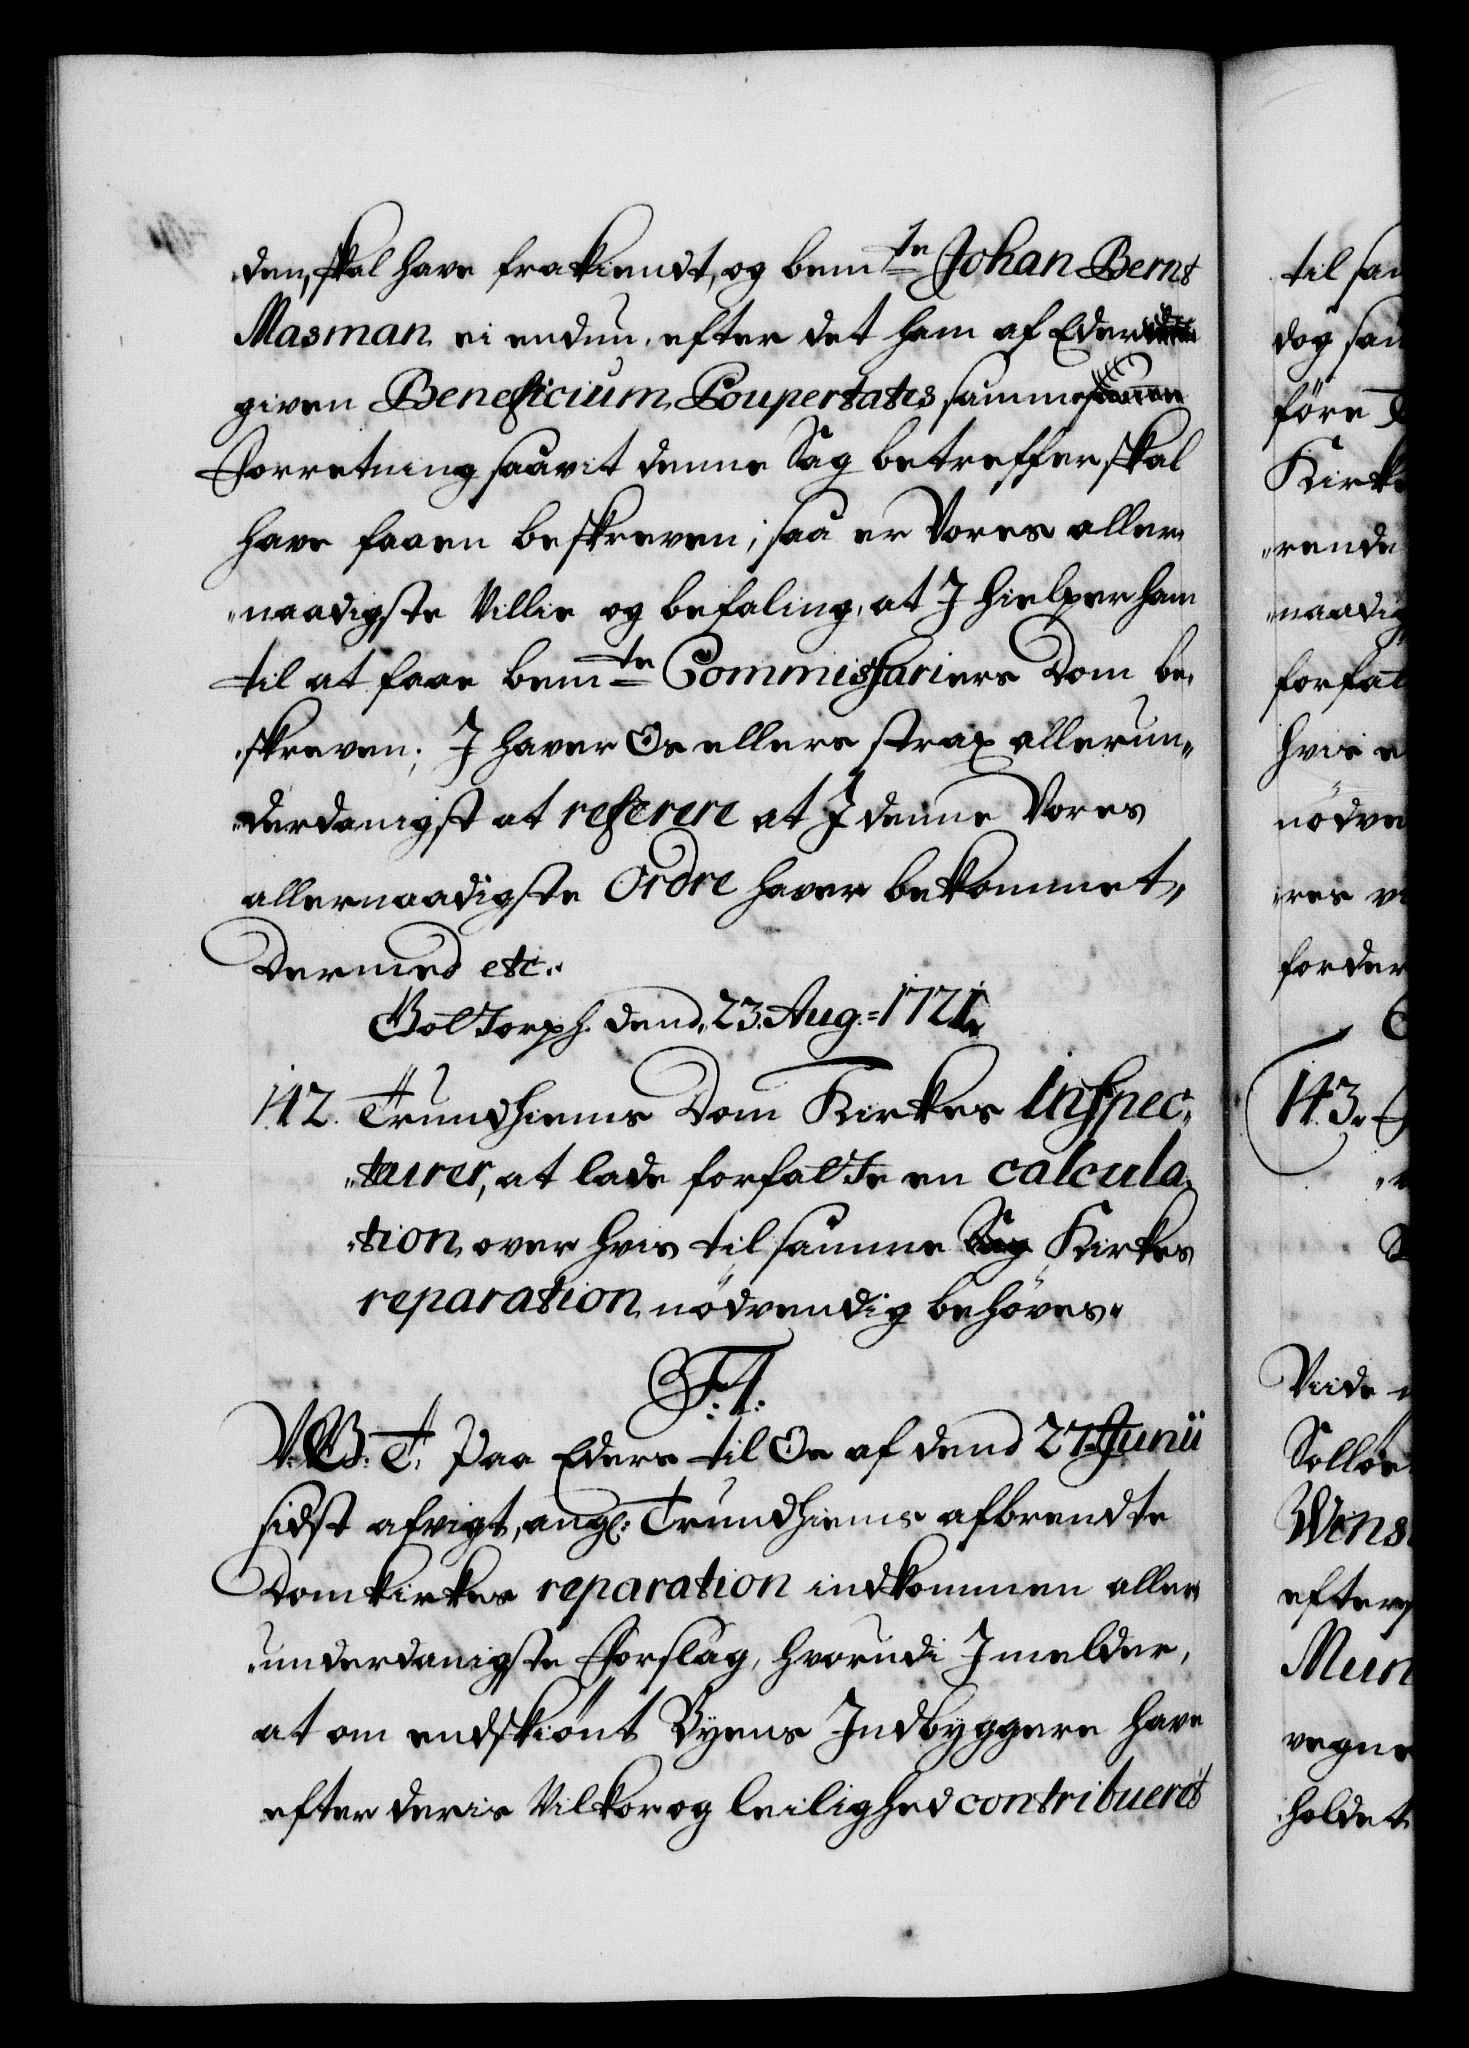 den, skal have frakiendt, og bem.te Johan Bernt
Masman ei endnu, efter det ham af Eder
given Beneficium Poupertatis samme
Forretning saavit denne Sag betreffer, skal
have faaen beskreven; saa er Vores aller,
,,naadigste Villie og befaling, at I hielper ham
til at faae bem.te Commissariers Dom be,
,,skreven; I haver Os ellers strax allerun,,
,,derdanigst at referere at I denne Vores
allernaadigste Ordre haver bekommet,
Dermed etc.
Gottorph. dend. 23. Aug: 1721.
142. Trundhiems Dom Kirkes Inspec,
,,teurer, at lade forfatte en calcula,
,,tion over hvis til samme Sag Kirkes
reparation nödvendig behöves.
F: 4:
V: G: T. Paa Eders til Os af dend 27. Junii
sidst afvigt, angl: Trundhiems afbrendte
Domkirkes reparation indkommen aller,
,,underdanigste Forslag, hvorudi I melder,
at om endskiönt Byens Indbyggere have
efter deris Vilkor og leilighed contribueret
til sam
dog saa
före
Kirke
,,rende
,,naadig
forfat
hvis
nödve
,,res
forder
143.
Viide
Sollöe
Wens
efter
Mun
vegne
holdet